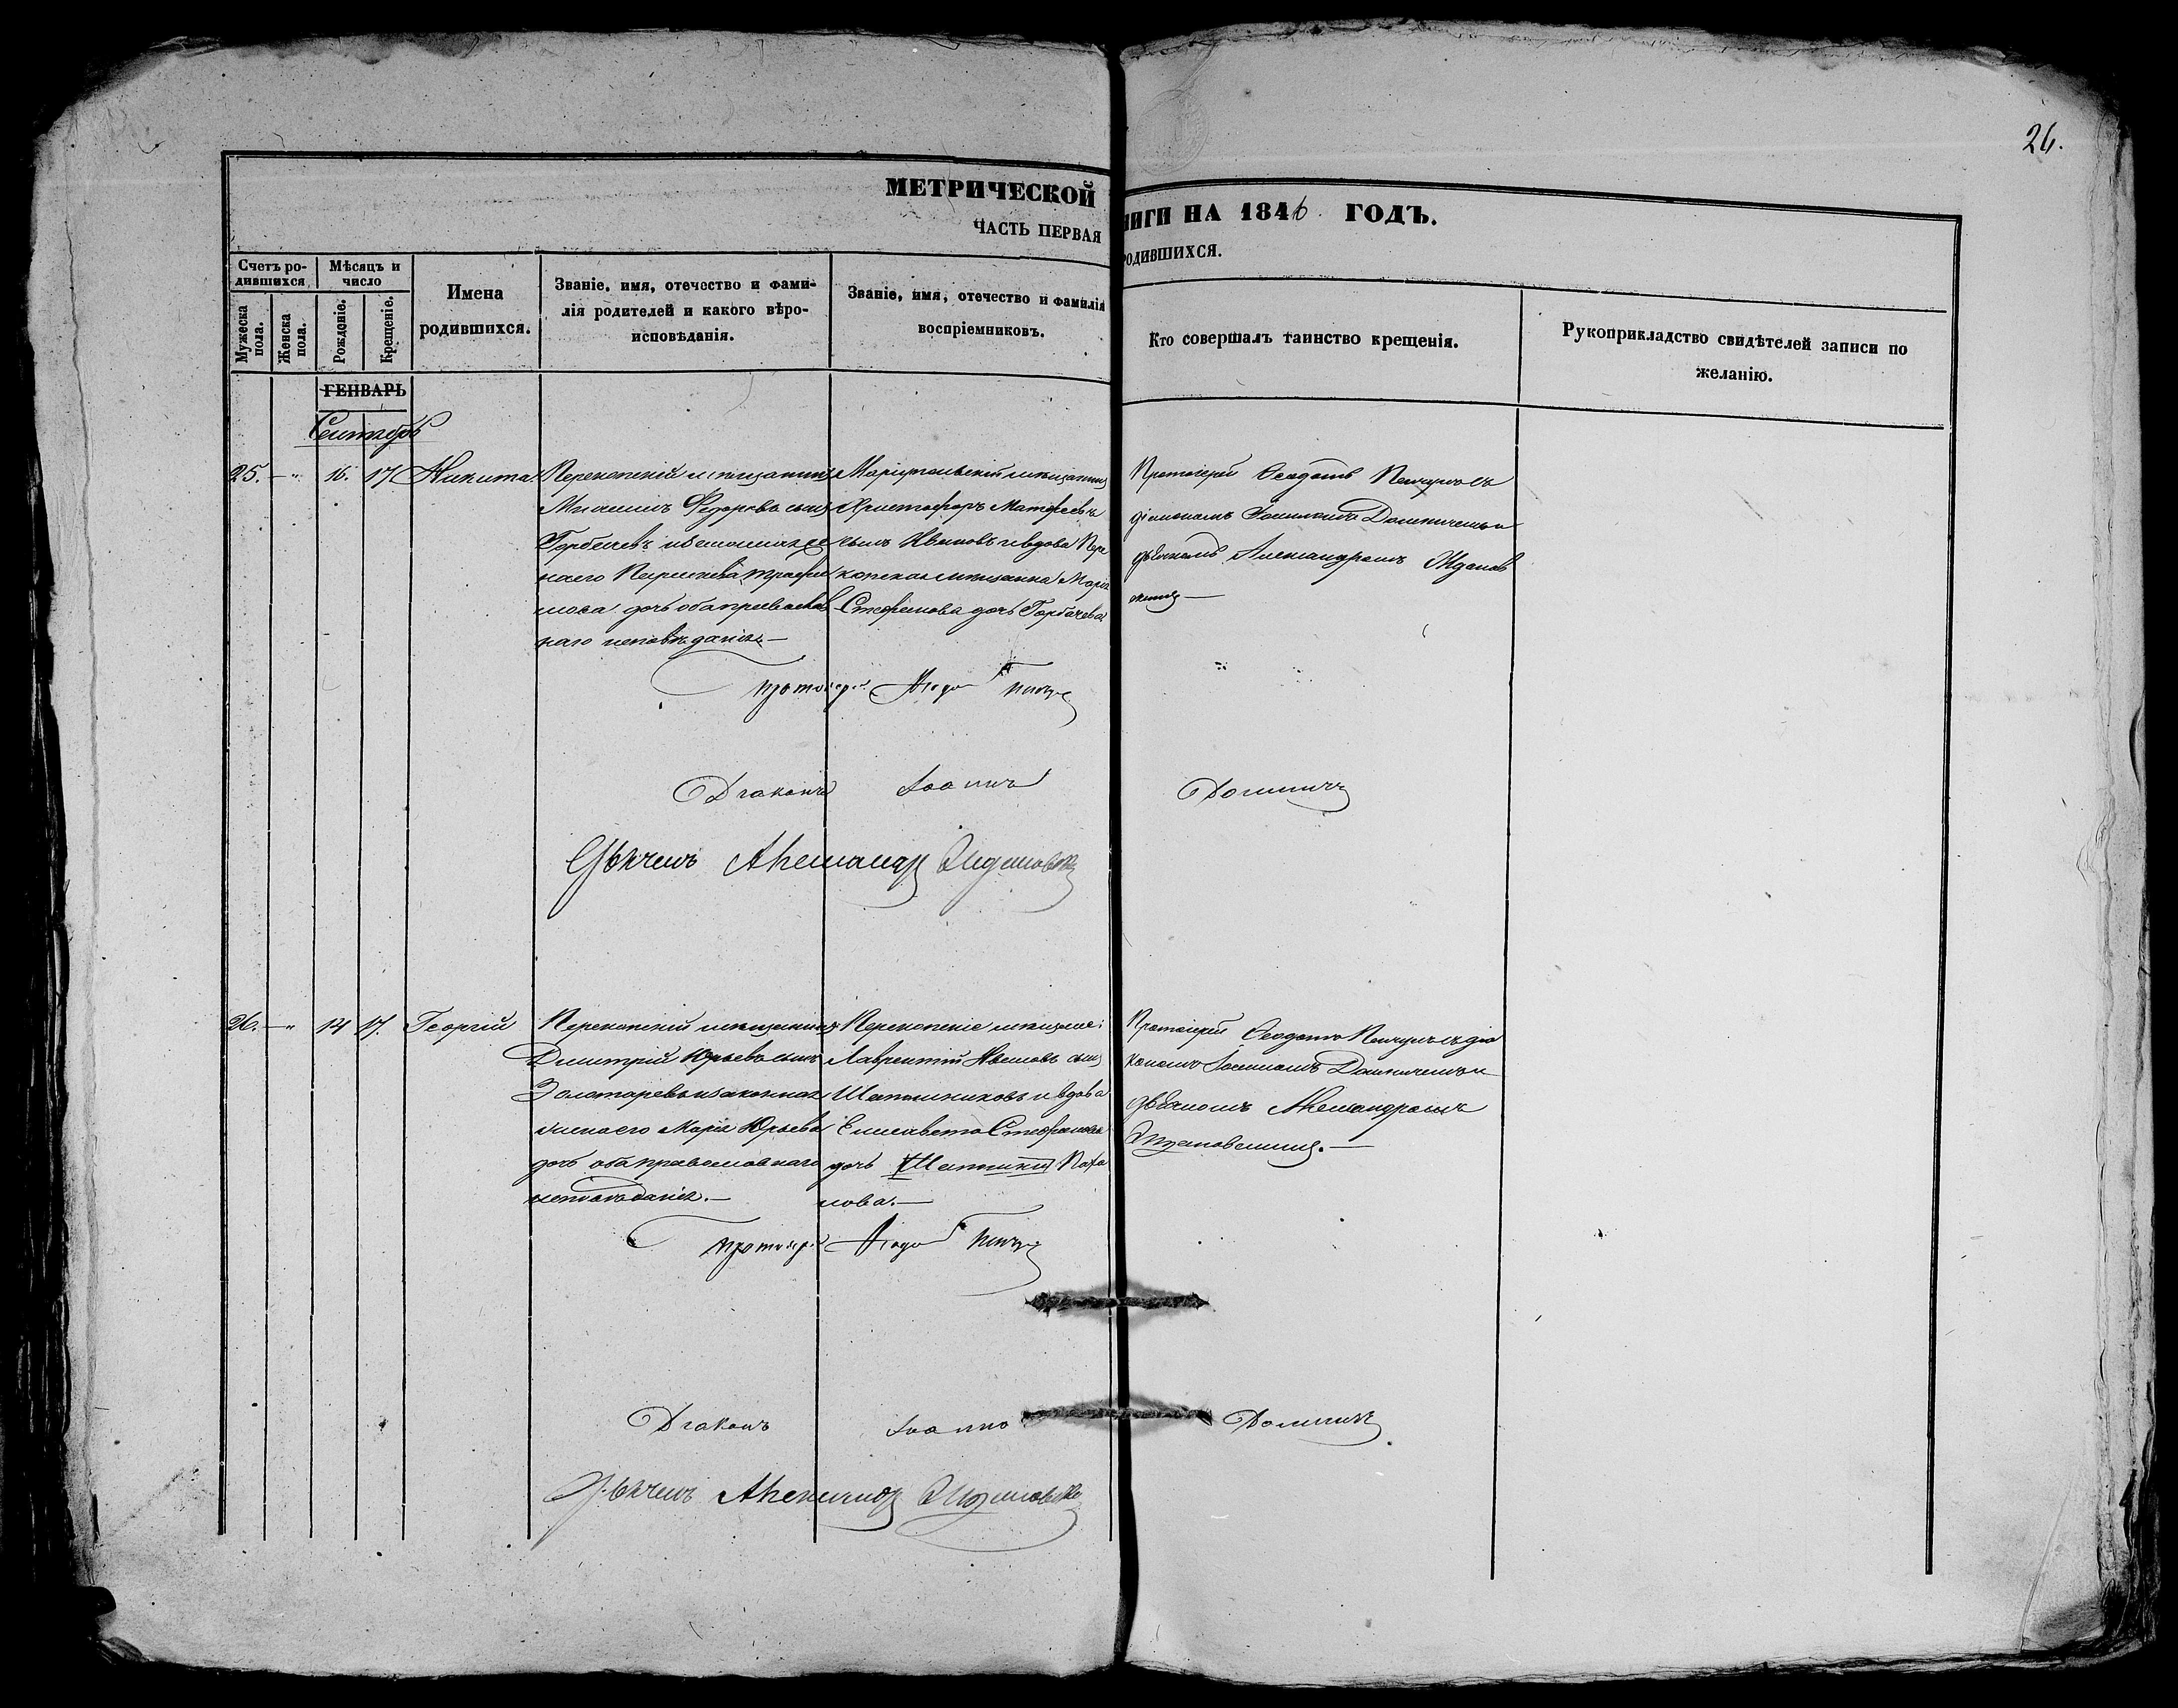 26.
МЕТРИЧЕСКОЙ
НИГИ НА 1846. ГОДЪ.
ЧАСТЬ ПЕРВАЯ
РОДИВШИХСЯ.
Счетъ ро-
дившихся
Мѣсяцъ и
число
Мужеска
пола.
Женска
пола.
Рожденіе.
Крещеніе.
Имена
родившихся.
Званіе, имя, отечество и фами-
лія родителей и какого вѣро-
исповѣданія.
Званіе, имя, отечество и фамилія
воспріемниковъ.
Кто совершалъ таинство крещенія.
Рукоприкладство свидѣтелей записи по
желанію.
ГЕНВАРЬ
Сентябрь
25. — " 16. 17. Никита
Перекопскій мѣщанинъ
Михаилъ Федоровъ сынъ
Горбачевъ и законная
его
дочь оба православ
наго исповѣданія.—
Маріупольскій мѣщанинъ
Христофоръ Матфеевъ
сынъ Ивановъ и вдова Пере
копская мѣщанка Марія
Стефанова дочь Горбачева
Протоіерей Феодотъ съ
діакономъ Іоанномъ и
дьячкомъ Александромъ Ждановскимъ—
Протоіерей
Діаконъ Іоаннъ
Дьячекъ Александръ Ждановскій
26. — " 14 17. Георгій
Перекопскій мѣщанинъ
Димитрій Юрьевъ сынъ
Золотаревъ и законная
жена его Марія Юрьева
дочь оба православнаго
исповѣданія.—
Перекопскіе мѣщане:
Лаврентій Ивановъ сынъ
Шапошниковъ и вдова
Елисавета Стефанова
дочь
нова.—
Протоіерей Феодотъ съ діа
кономъ Іоанномъ и
дьячкомъ Александромъ
Ждановскимъ.—
Протоіерей
Діаконъ Іоаннъ
Дьячекъ Александръ Ждановскій